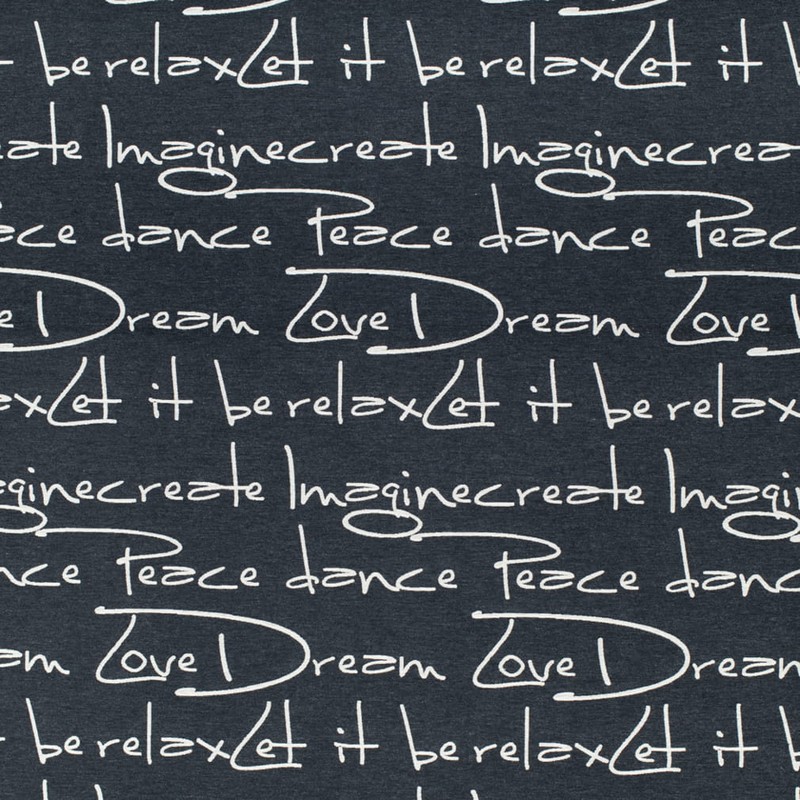 be relax Let it be relax Let it
eate Imagine create Imagine crea
ace dance Peace dance Peac
e Dream Love Dream Love
ax Let it be relax Let it be relax
agine create Imagine create Imagi
nce Peace dance Peace danc
am Love Dream Love Dream
be relax Let it be relax Let it